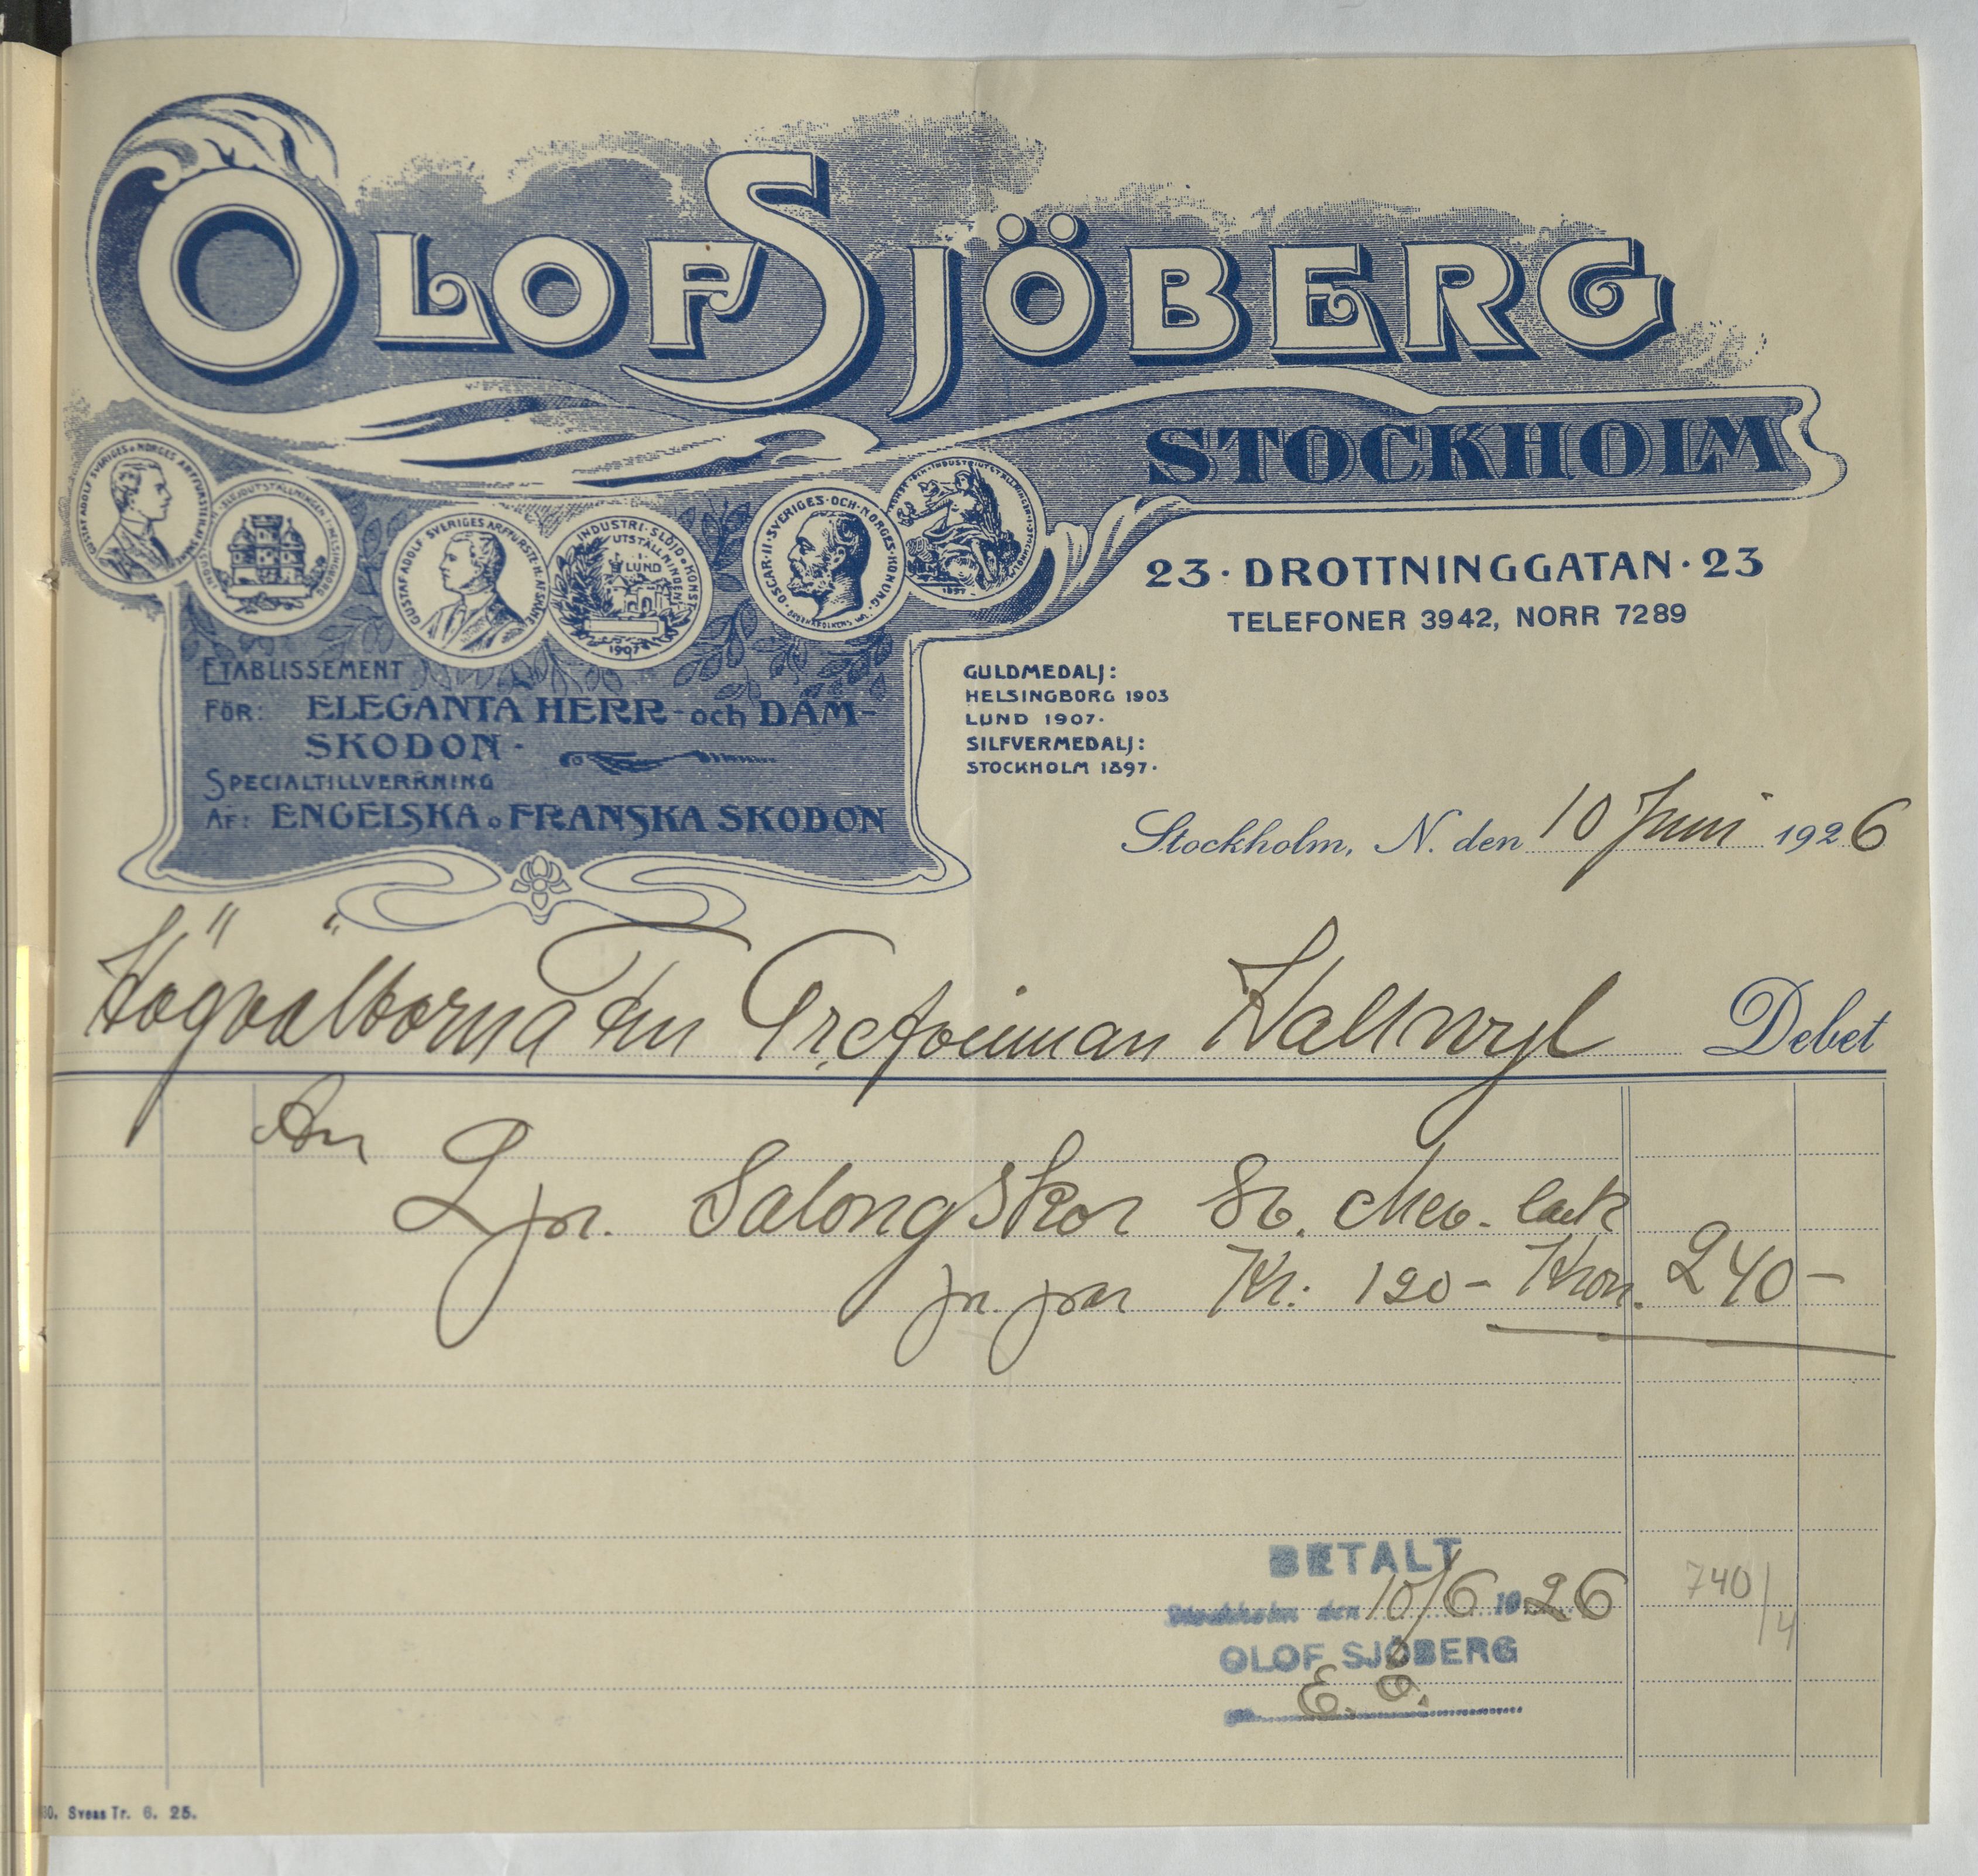 OLOF SJÖBERG
STOCKHOLM
23 · DROTTNINGGATAN · 23
TELEFONER 3942, NORR 7289
GUSTAF ADOLF SVERIGES o NORGES ARFFURSTE
SLÖJDUTSTÄLLNINGEN I HELSINGBORG
GUSTAF ADOLF SVERIGES ARFFURSTE H. AF SKÅNE
INDUSTRI · SLÖJD o KONST
UTSTÄLLNINGEN
LUND
1907
OSCAR · II · SVERIGES · OCH · NORGES · KONUNG ·
1897
ETABLISSEMENT
FÖR: ELEGANTA HERR- och DAM-
SKODON ·
SPECIALTILLVERKNING
AF: ENGELSKA o FRANSKA SKODON
GULDMEDALJ:
HELSINGBORG 1903
LUND 1907 ·
SILFVERMEDALJ:
STOCKHOLM 1897 ·
Stockholm, N. den 10 Juni 1926
Högvälborna Fru Grefvinnan Hallwyl Debet
An
2 pr. Salongskor Sv. Chev. lack
pr. par Kr. 120 – Kron. 240 –
BETALT
Stockholm den 10/6 1926
OLOF SJÖBERG
E. Ö.
740/4
Sveas Tr. 6. 25.